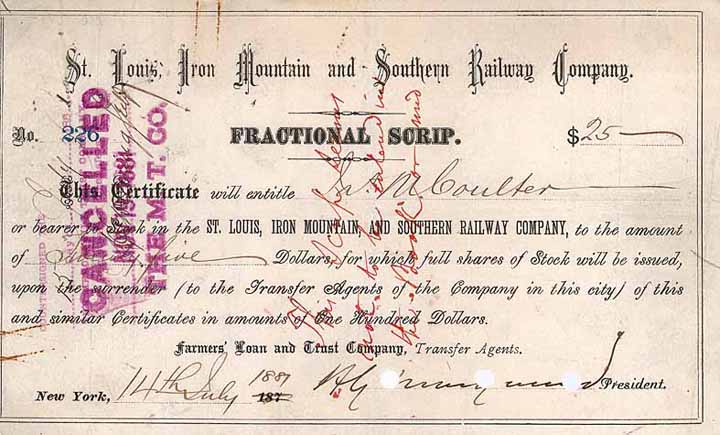 St. Louis, Iron Mountain and Southern Railway Company.
No. 226 FRACTIONAL SCRIP. $25
This Certificate will entitle M Coulter
or bearer to Stock in the ST. LOUIS, IRON MOUNTAIN AND SOUTHERN RAILWAY COMPANY, to the amount
of Twenty five Dollars, for which full shares of Stock will be issued,
upon the surrender (to the Transfer Agents of the Company in this city) of this
and similar Certificates in amounts of One Hundred Dollars.
Farmers' Loan and Trust Company, Transfer Agents.
New York, 14th July 1881 187 President.
CANCELLED
THE M. T. CO.
COUNTERSIGNED
This Scrip
not to be